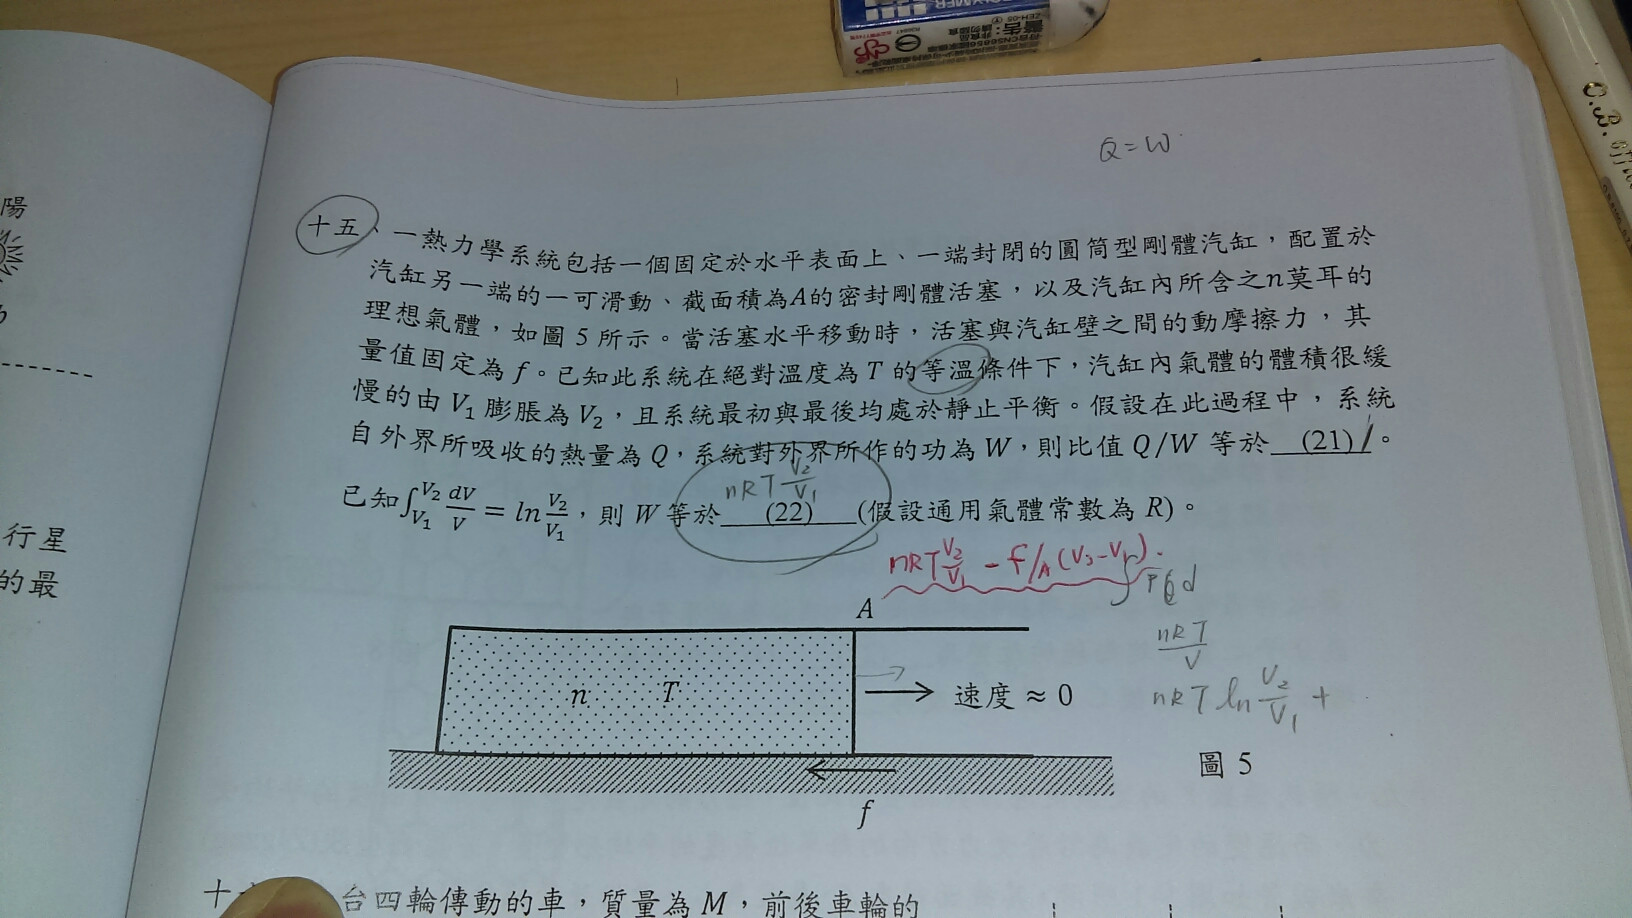 Q=W
陽
十五、一熱力學系統包括一個固定於水平表面上、一端封閉的圓筒型剛體汽缸，配置於
汽缸另一端的一可滑動、截面積為A的密封剛體活塞，以及汽缸內所含之n莫耳的
理想氣體，如圖 5 所示。當活塞水平移動時，活塞與汽缸壁之間的動摩擦力，其
量值固定為 f。已知此系統在絕對溫度為 T 的等溫條件下，汽缸內氣體的體積很緩
慢的由 V₁ 膨脹為 V₂，且系統最初與最後均處於靜止平衡。假設在此過程中，系統
自外界所吸收的熱量為 Q，系統對外界所作的功為 W，則比值 Q/W 等於 (21) 1。
nRT V₂/V₁
已知∫_{V₁}^{V₂} dV/V = ln V₂/V₁，則 W 等於 (22) (假設通用氣體常數為 R)。
行星
的最
nRT V₂/V₁ - f/A (V₂-V₁).
A
nRT/V
n T
速度 ≈ 0
nRT ln V₂/V₁ +
圖 5
f
台四輪傳動的車，質量為 M，前後車輪的